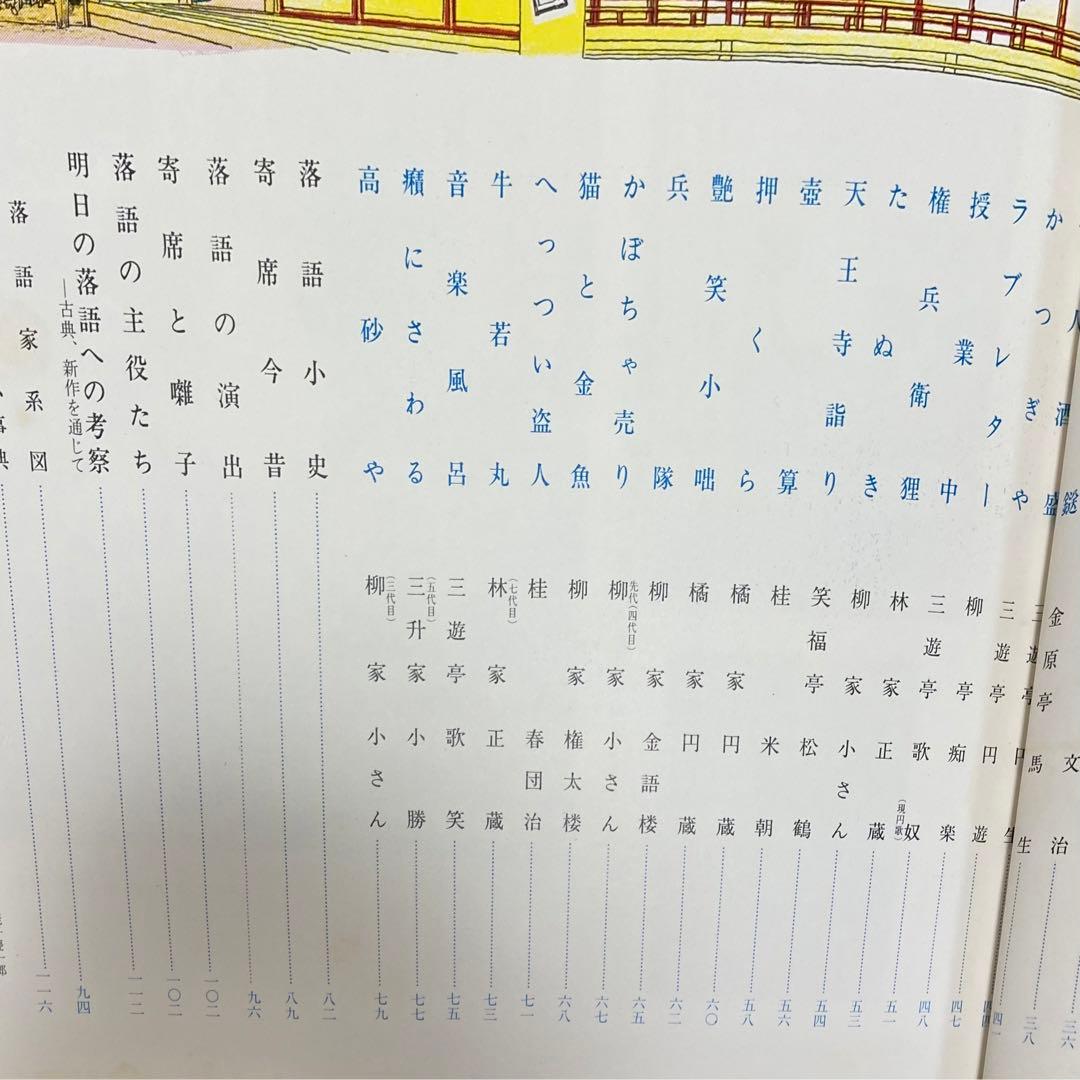 八 鎹
酒盛 文治 三八
かつぎや
ラブレター 三遊亭円遊
授業中 柳亭痴楽
権兵衛狸 三遊亭歌奴(現円歌)
たぬき 林家正蔵
天王寺詣り 柳家小さん
壺算 笑福亭松鶴
押くら 桂米朝
艶笑小咄 橘家円蔵
兵隊 橘家円蔵
かぼちゃ売り 柳家金語楼
猫と金魚 先代(四代目)柳家小さん
へっつい盗人 柳家権太楼
牛若丸 桂春団治
音楽風呂 (七代目)林家正蔵
癪にさわる 三遊亭歌笑
高砂や (五代目)三升家小勝
(三代目)柳家小さん
金原亭馬生
三遊亭円生
三六
四一
四四
四七
四八
五一
五三
五四
五六
五八
六〇
六二
六五
六七
六八
七一
七三
七五
七七
七九
落語小史 八二
寄席今昔 八九
落語の演出 九六
寄席と囃子 一〇二
落語の主役たち 一〇二
明日の落語への考察 一一二
―古典、新作を通じて 九四
落語家系図 一一六
事典